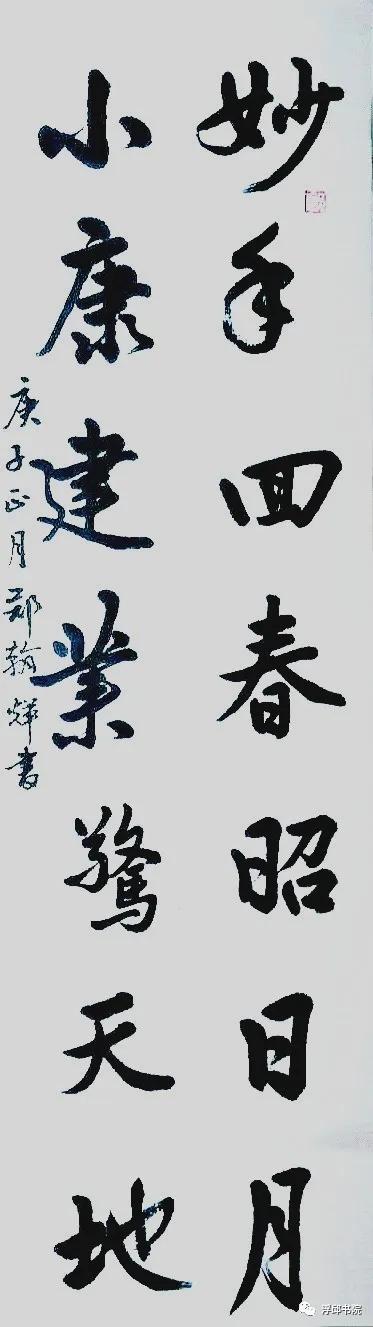 妙手回春昭日月
小康建業驚天地
庚子正月鄭翰輝書
浮邱书院